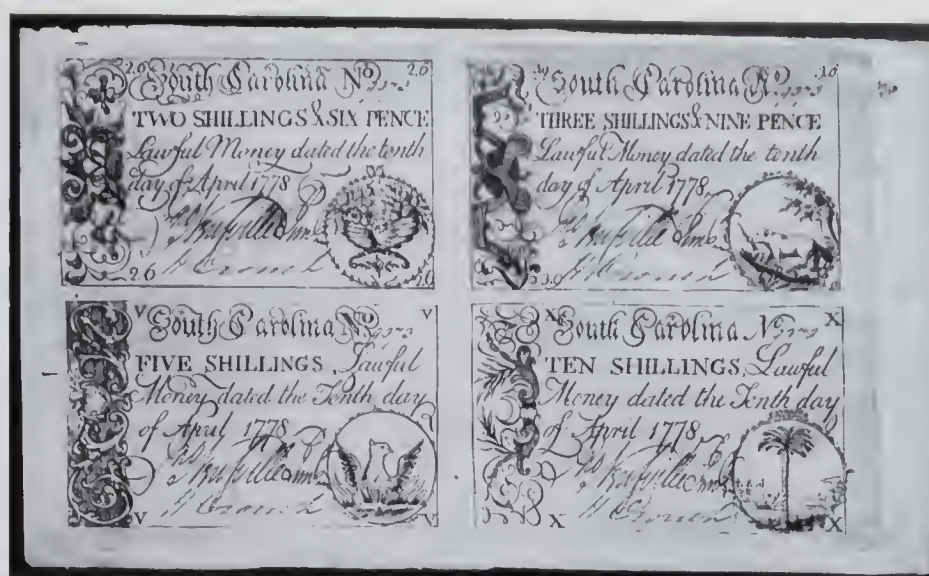 2.6 South Carolina No. 2.6
TWO SHILLINGS & SIX PENCE
Lawful Money dated the tenth
day of April 1778
H Crouch
2.6 2.6
South Carolina No. 3.9
THREE SHILLINGS & NINE PENCE
Lawful Money dated the tenth
day of April 1778
H Crouch
3.9
V South Carolina No. V
FIVE SHILLINGS, Lawful
Money dated the Tenth day
of April 1778
H Crouch
V V
X South Carolina No. X
TEN SHILLINGS, Lawful
Money dated the Tenth day
of April 1778
H Crouch
X X